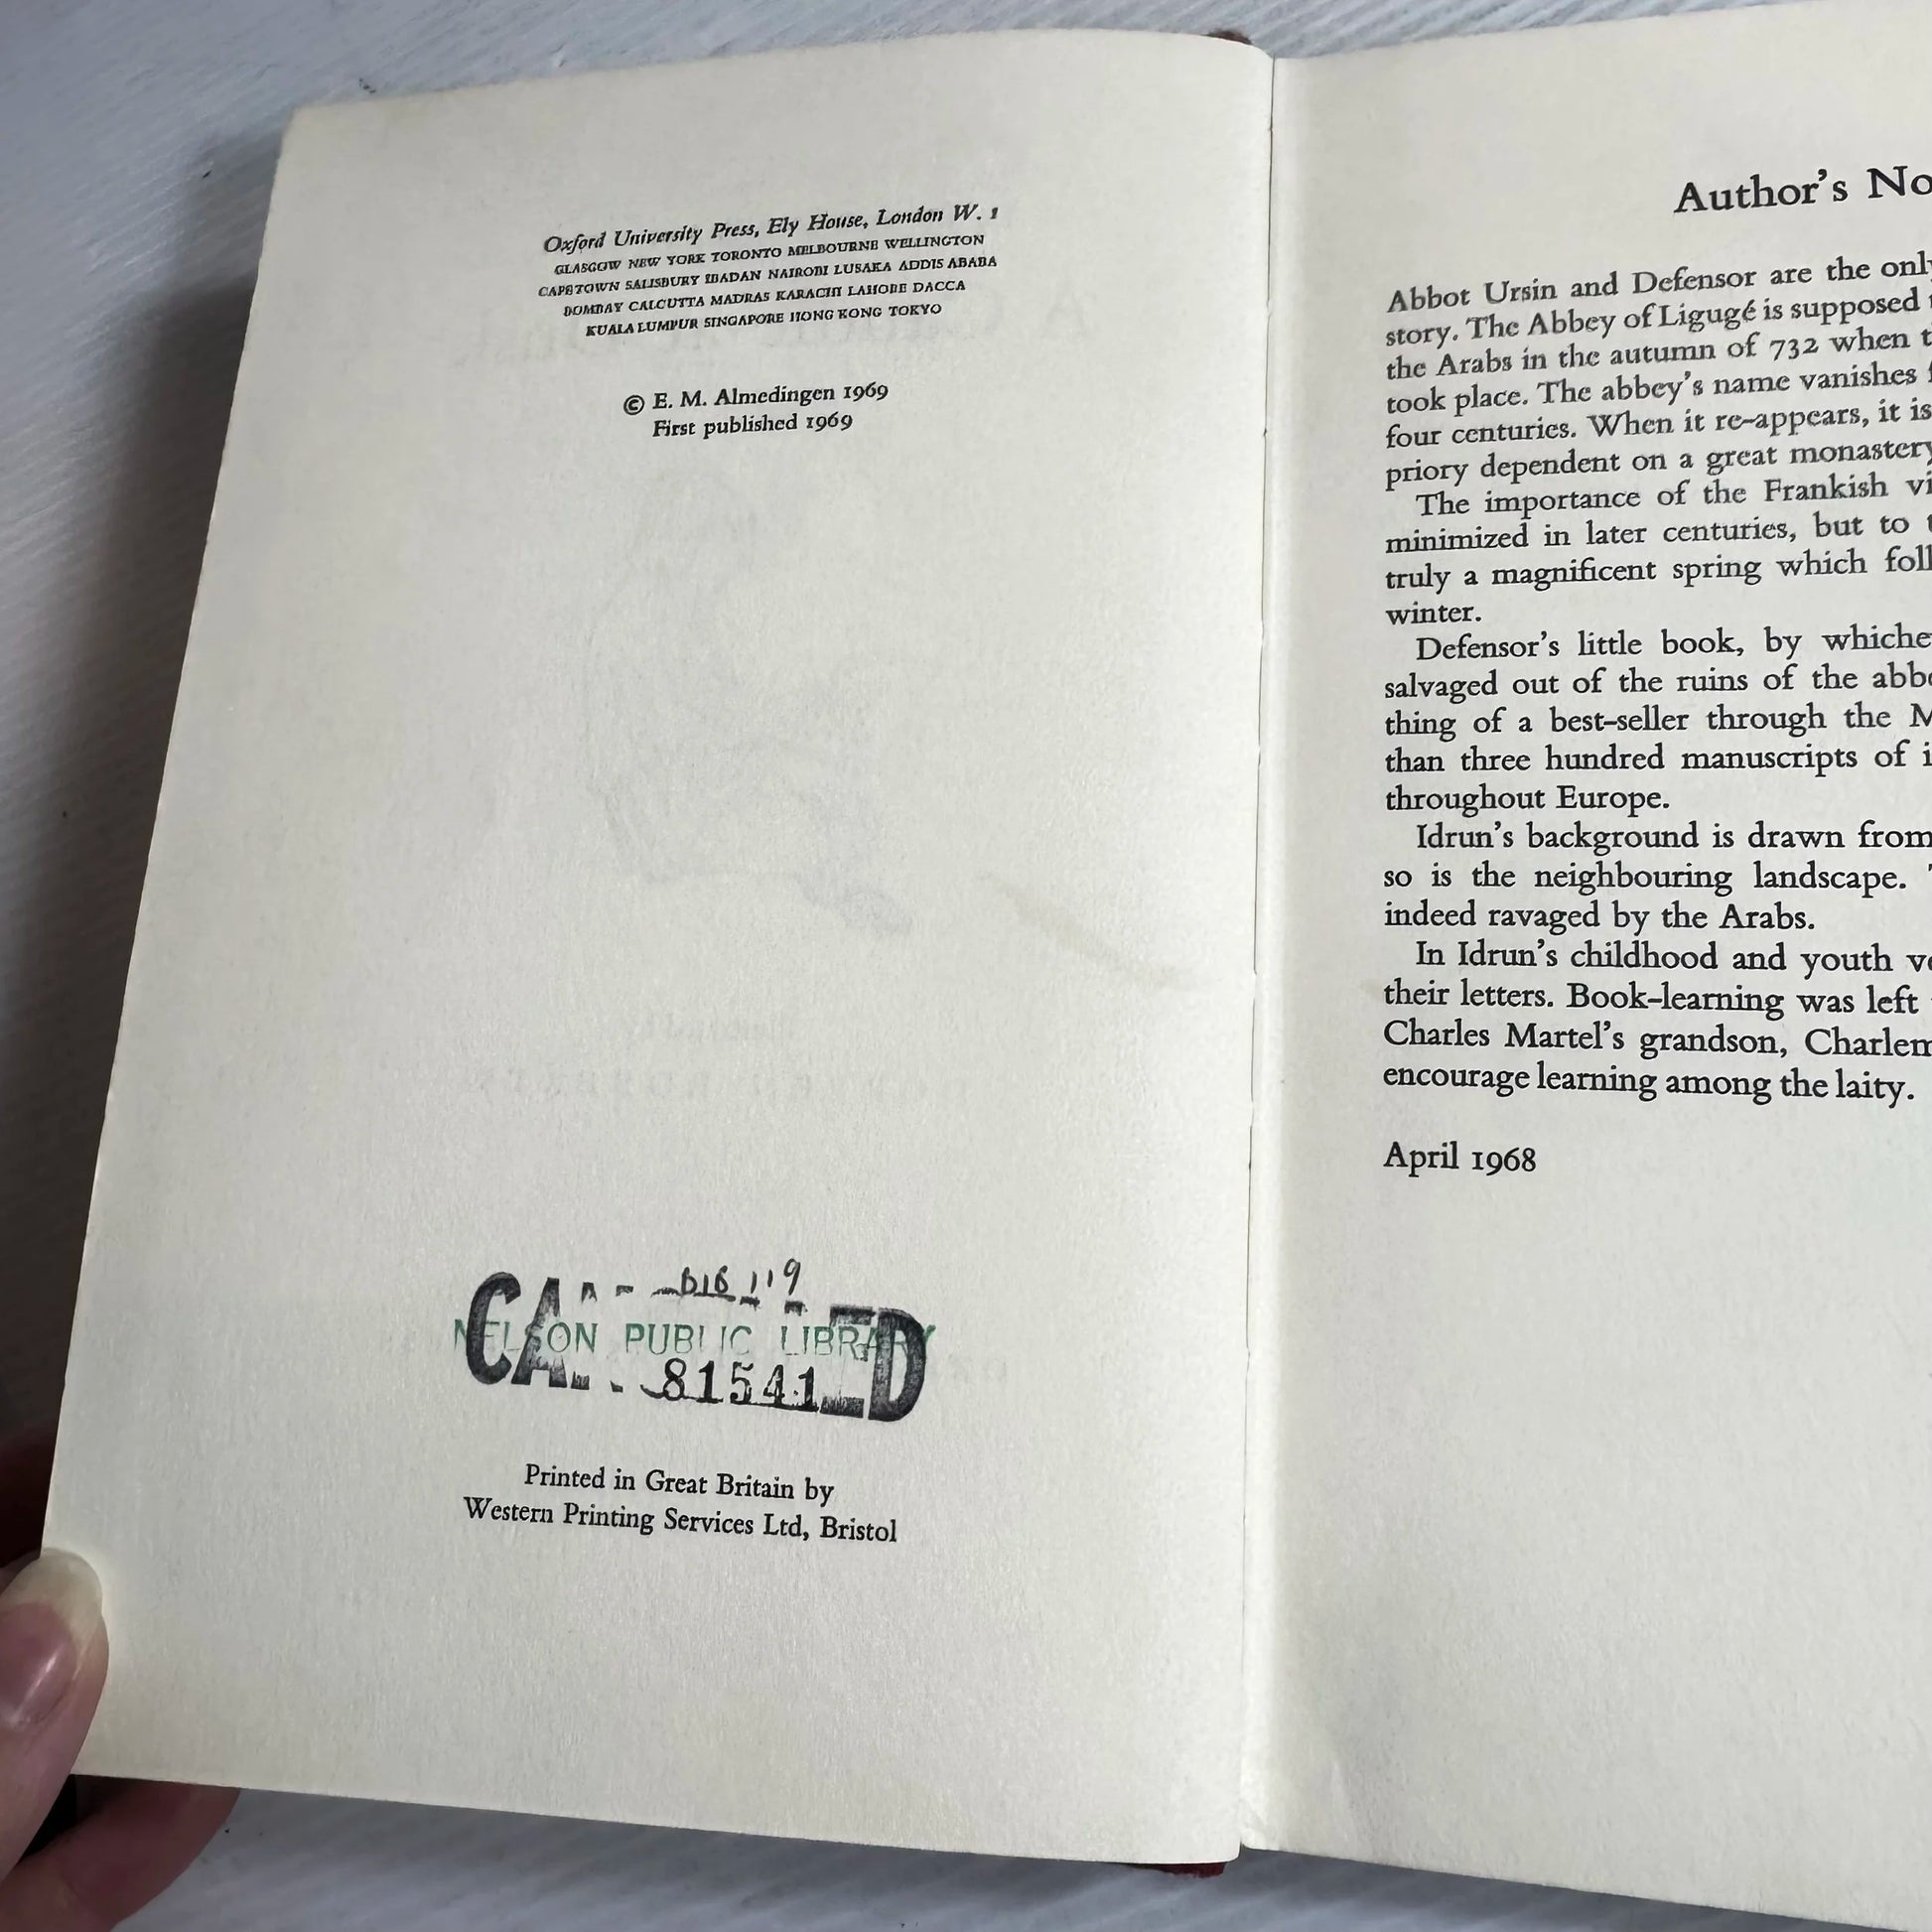 Oxford University Press, Ely House, London W. 1
GLASGOW NEW YORK TORONTO MELBOURNE WELLINGTON
CAPE TOWN SALISBURY IBADAN NAIROBI LUSAKA ADDIS ABABA
BOMBAY CALCUTTA MADRAS KARACHI LAHORE DACCA
KUALA LUMPUR SINGAPORE HONG KONG TOKYO
© E. M. Almedingen 1969
First published 1969
CANCELLED
NELSON PUBLIC LIBRARY
81541
Printed in Great Britain by
Western Printing Services Ltd, Bristol
Author's No
Abbot Ursin and Defensor are the only
story. The Abbey of Ligugé is supposed
the Arabs in the autumn of 732 when
took place. The abbey's name vanishes
four centuries. When it re-appears, it is
priory dependent on a great monastery
The importance of the Frankish vi
minimized in later centuries, but to
truly a magnificent spring which foll
winter.
Defensor's little book, by whiche
salvaged out of the ruins of the abb
thing of a best-seller through the M
than three hundred manuscripts of i
throughout Europe.
Idrun's background is drawn from
so is the neighbouring landscape.
indeed ravaged by the Arabs.
In Idrun's childhood and youth v
their letters. Book-learning was left
Charles Martel's grandson, Charlem
encourage learning among the laity.
April 1968